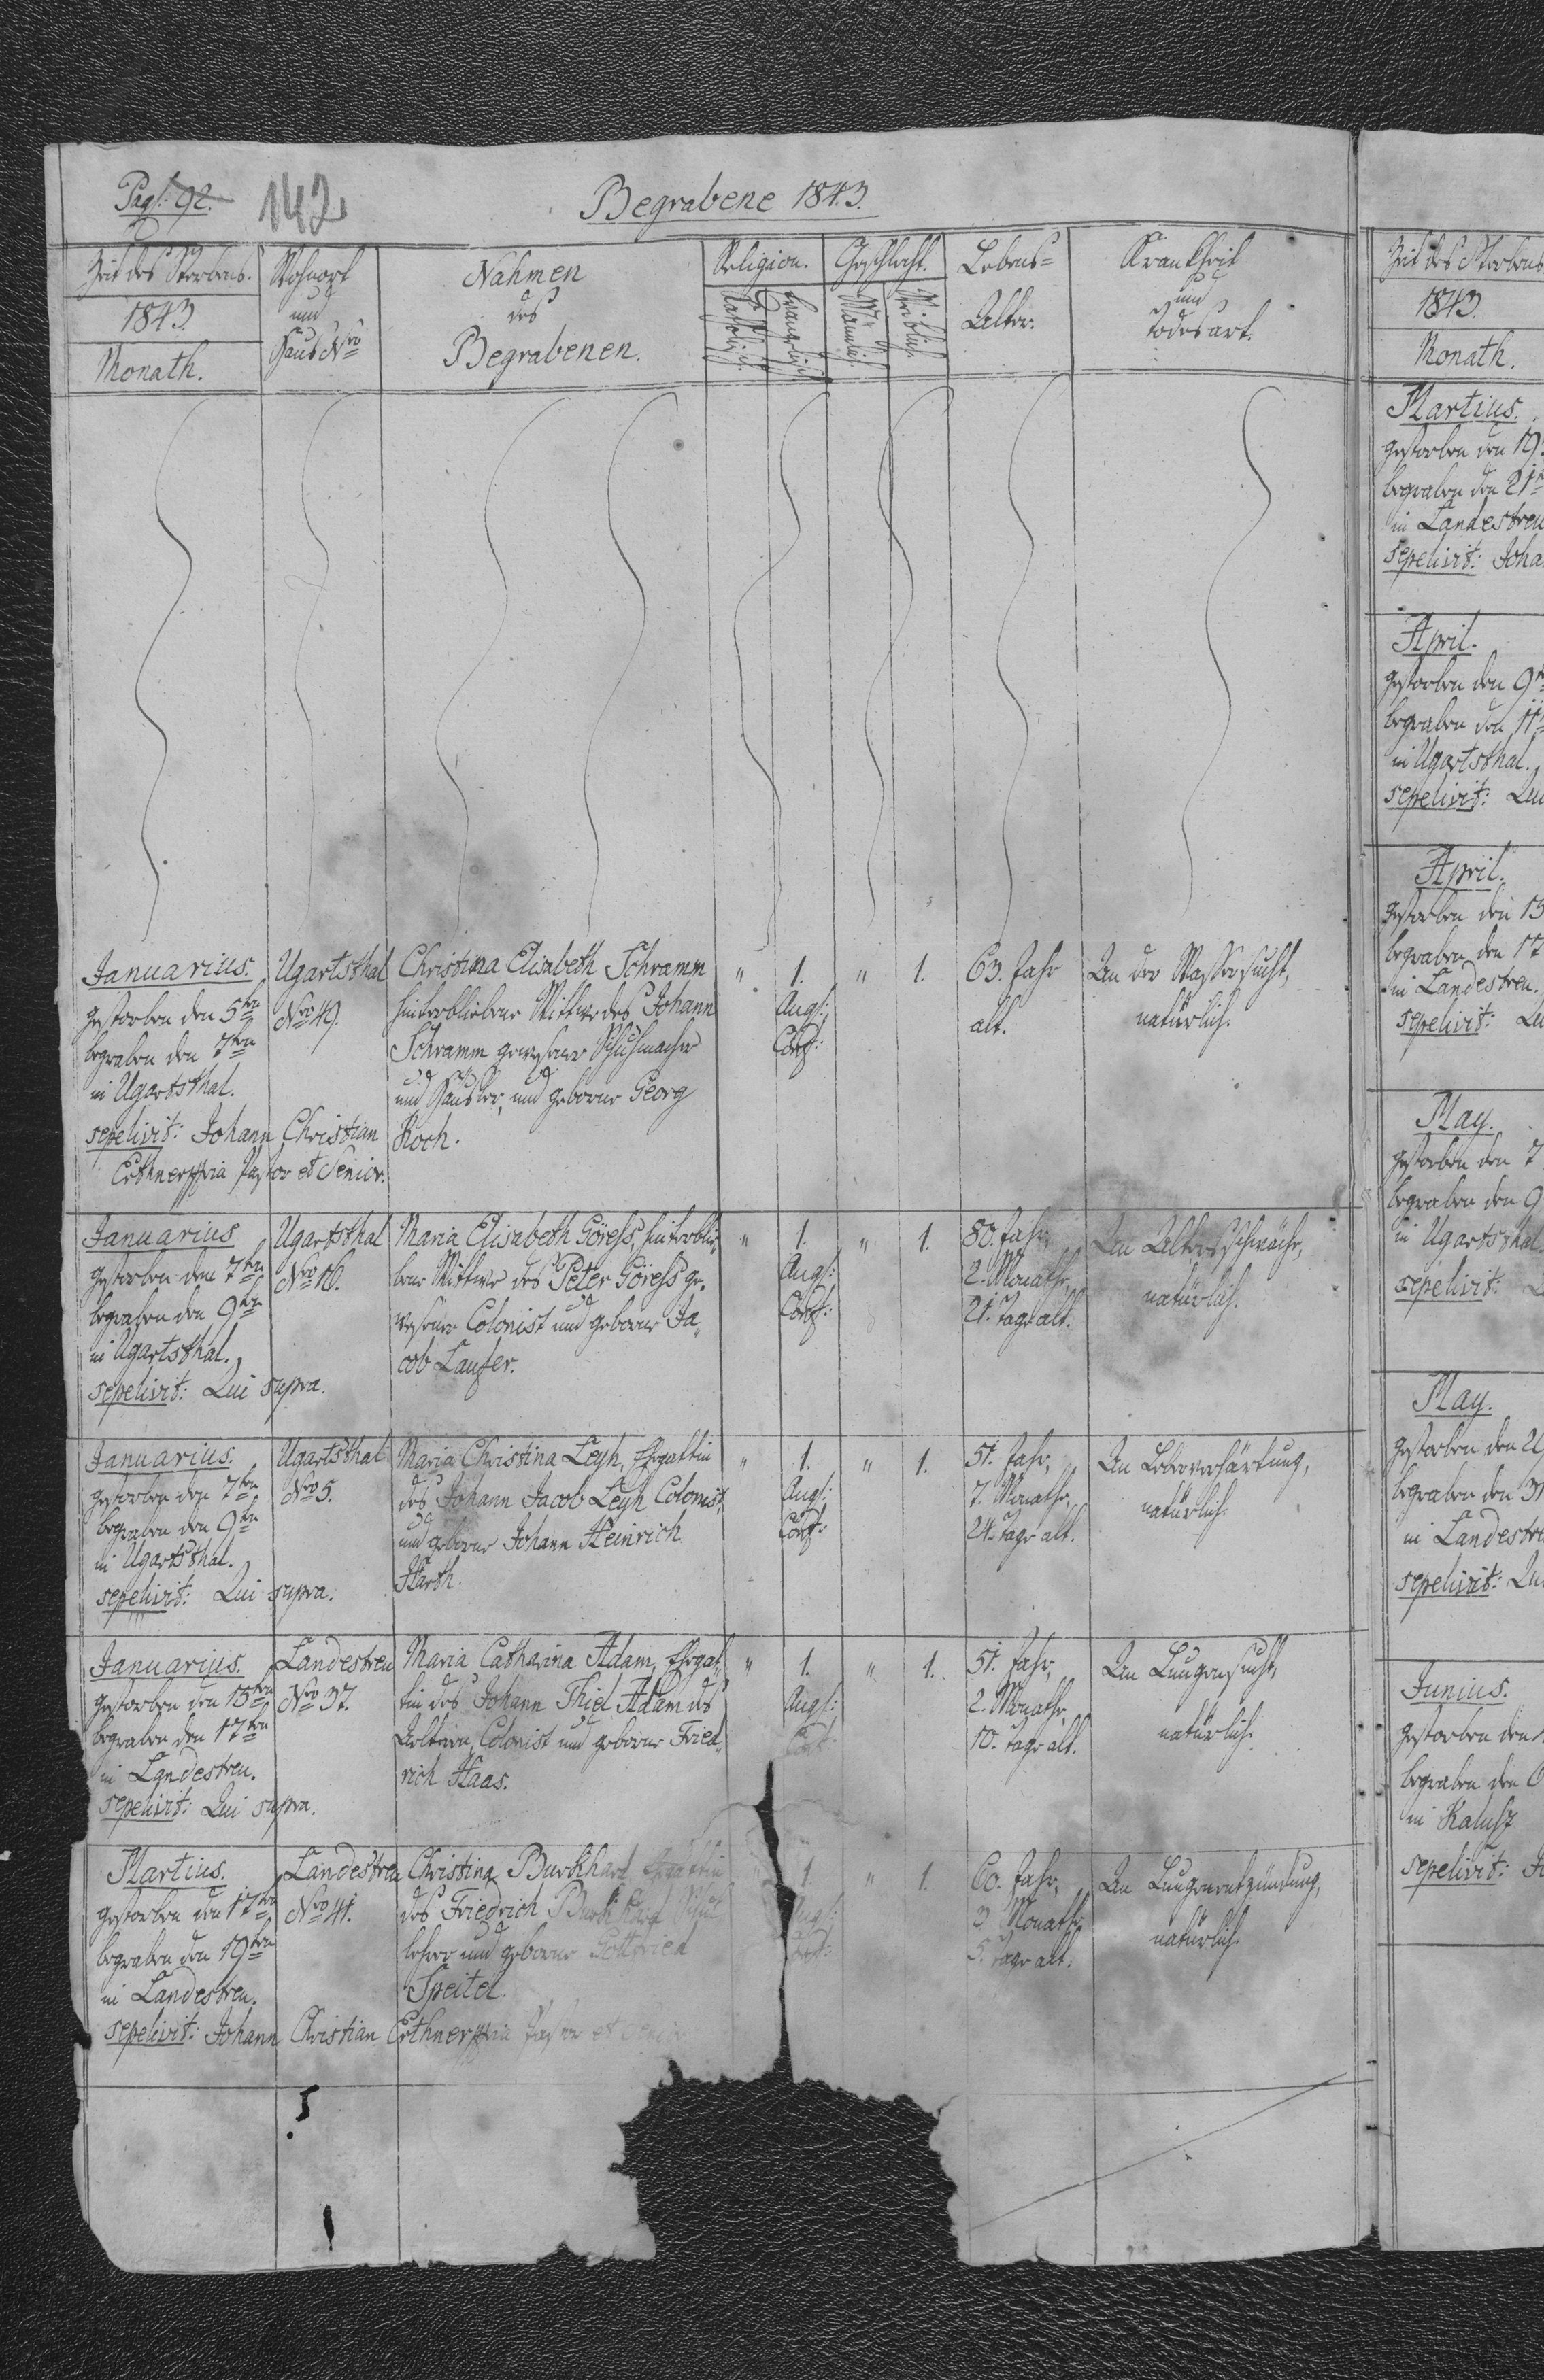 Pag: 92.
142
Begrabene 1843.
Zeit des Sterbens.
1843.
Monath.
Wohnort
und
Haus Nro
Nahmen
des
Begrabenen.
Religion.
Katholisch.
Evangelisch.
Geschlecht.
Männlich.
Weiblich.
Lebens=
Alter.
Krankheit
und
Todesart.
Januarius.
gestorben den 5ten
begraben den 7ten
in Ugartsthal.
sepelivit: Johann Christian
Pastor et Senior.
Ugartsthal
Nro 49.
Christina Elisabeth Schramm
hinterbliebene Wittwe des Johann
Schramm gewesener Schuhmacher
und Häusler, und geborne Georg
Koch.
" 1. " 1.
Augs:
Conf:
63. Jahr
alt.
An der Wassersucht,
natürlich.
Januarius
gestorben den 7ten
begraben den 9ten
in Ugartsthal.
sepelivit: Qui supra.
Ugartsthal
Nro 16.
Maria Elisabeth Göress, hinterblie¬
bene Wittwe des Peter Göress ge¬
wesener Colonist und geborne Ja¬
cob Laufer.
" 1. " 1.
Augs:
Conf:
80. Jahr,
2. Monathe,
21. Tage alt.
An Altersschwäche,
natürlich.
Januarius.
gestorben den 7ten
begraben den 9ten
in Ugartsthal.
sepelivit: Qui supra.
Ugartsthal
Nro 5.
Maria Christina Leyh, Ehegattin
des Johann Jacob Leyh Colonist,
und geborne Johann Heinrich
Harth.
" 1. " 1.
Augs:
Conf:
51. Jahr,
7. Monathe,
24. Tage alt.
An Leberverhärtung,
natürlich.
Januarius.
gestorben den 15ten
begraben den 17ten
in Landestreu.
sepelivit: Qui supra.
Landestreu
Nro 37.
Maria Catharina Adam, Ehegat¬
tin des Johann Thiel Adam des
Aeltern, Colonist und geborne Fried¬
rich Haas.
" 1. " 1.
Augs:
Conf:
51. Jahr,
2. Monathe,
10. Tage alt.
An Lungensucht,
natürlich.
Martius.
gestorben den 17ten
begraben den 19ten
in Landestreu.
sepelivit: Johann Christian Pastor et Senior
Landestreu
Nro 41.
Christina Burkhard Ehegattin
des Friedrich Burkhard Schul
lehrer und geborne Gottfried
Speitel.
" 1 " 1.
Augs:
Conf:
60. Jahr,
3. Monathe
5. Tage alt.
An Lungenentzündung,
natürlich.
Zeit des Sterbens
1843.
Monath.
Martius.
gestorben den 19
begraben den 21
in Landestreu
sepelivit: Joha
April.
gestorben den 9
begraben den 11
in Ugartsthal.
sepelivit: Qui
April.
gestorben den 15
begraben den 17
in Landestreu.
sepelivit: Qu
May.
gestorben den 7
begraben den 9
in Ugartsthal.
sepelivit:
May.
gestorben den 29
begraben den 31
in Landestre
sepelivit: Qu
Junius.
gestorben den
begraben den 6
in Kalusz
sepelivit: